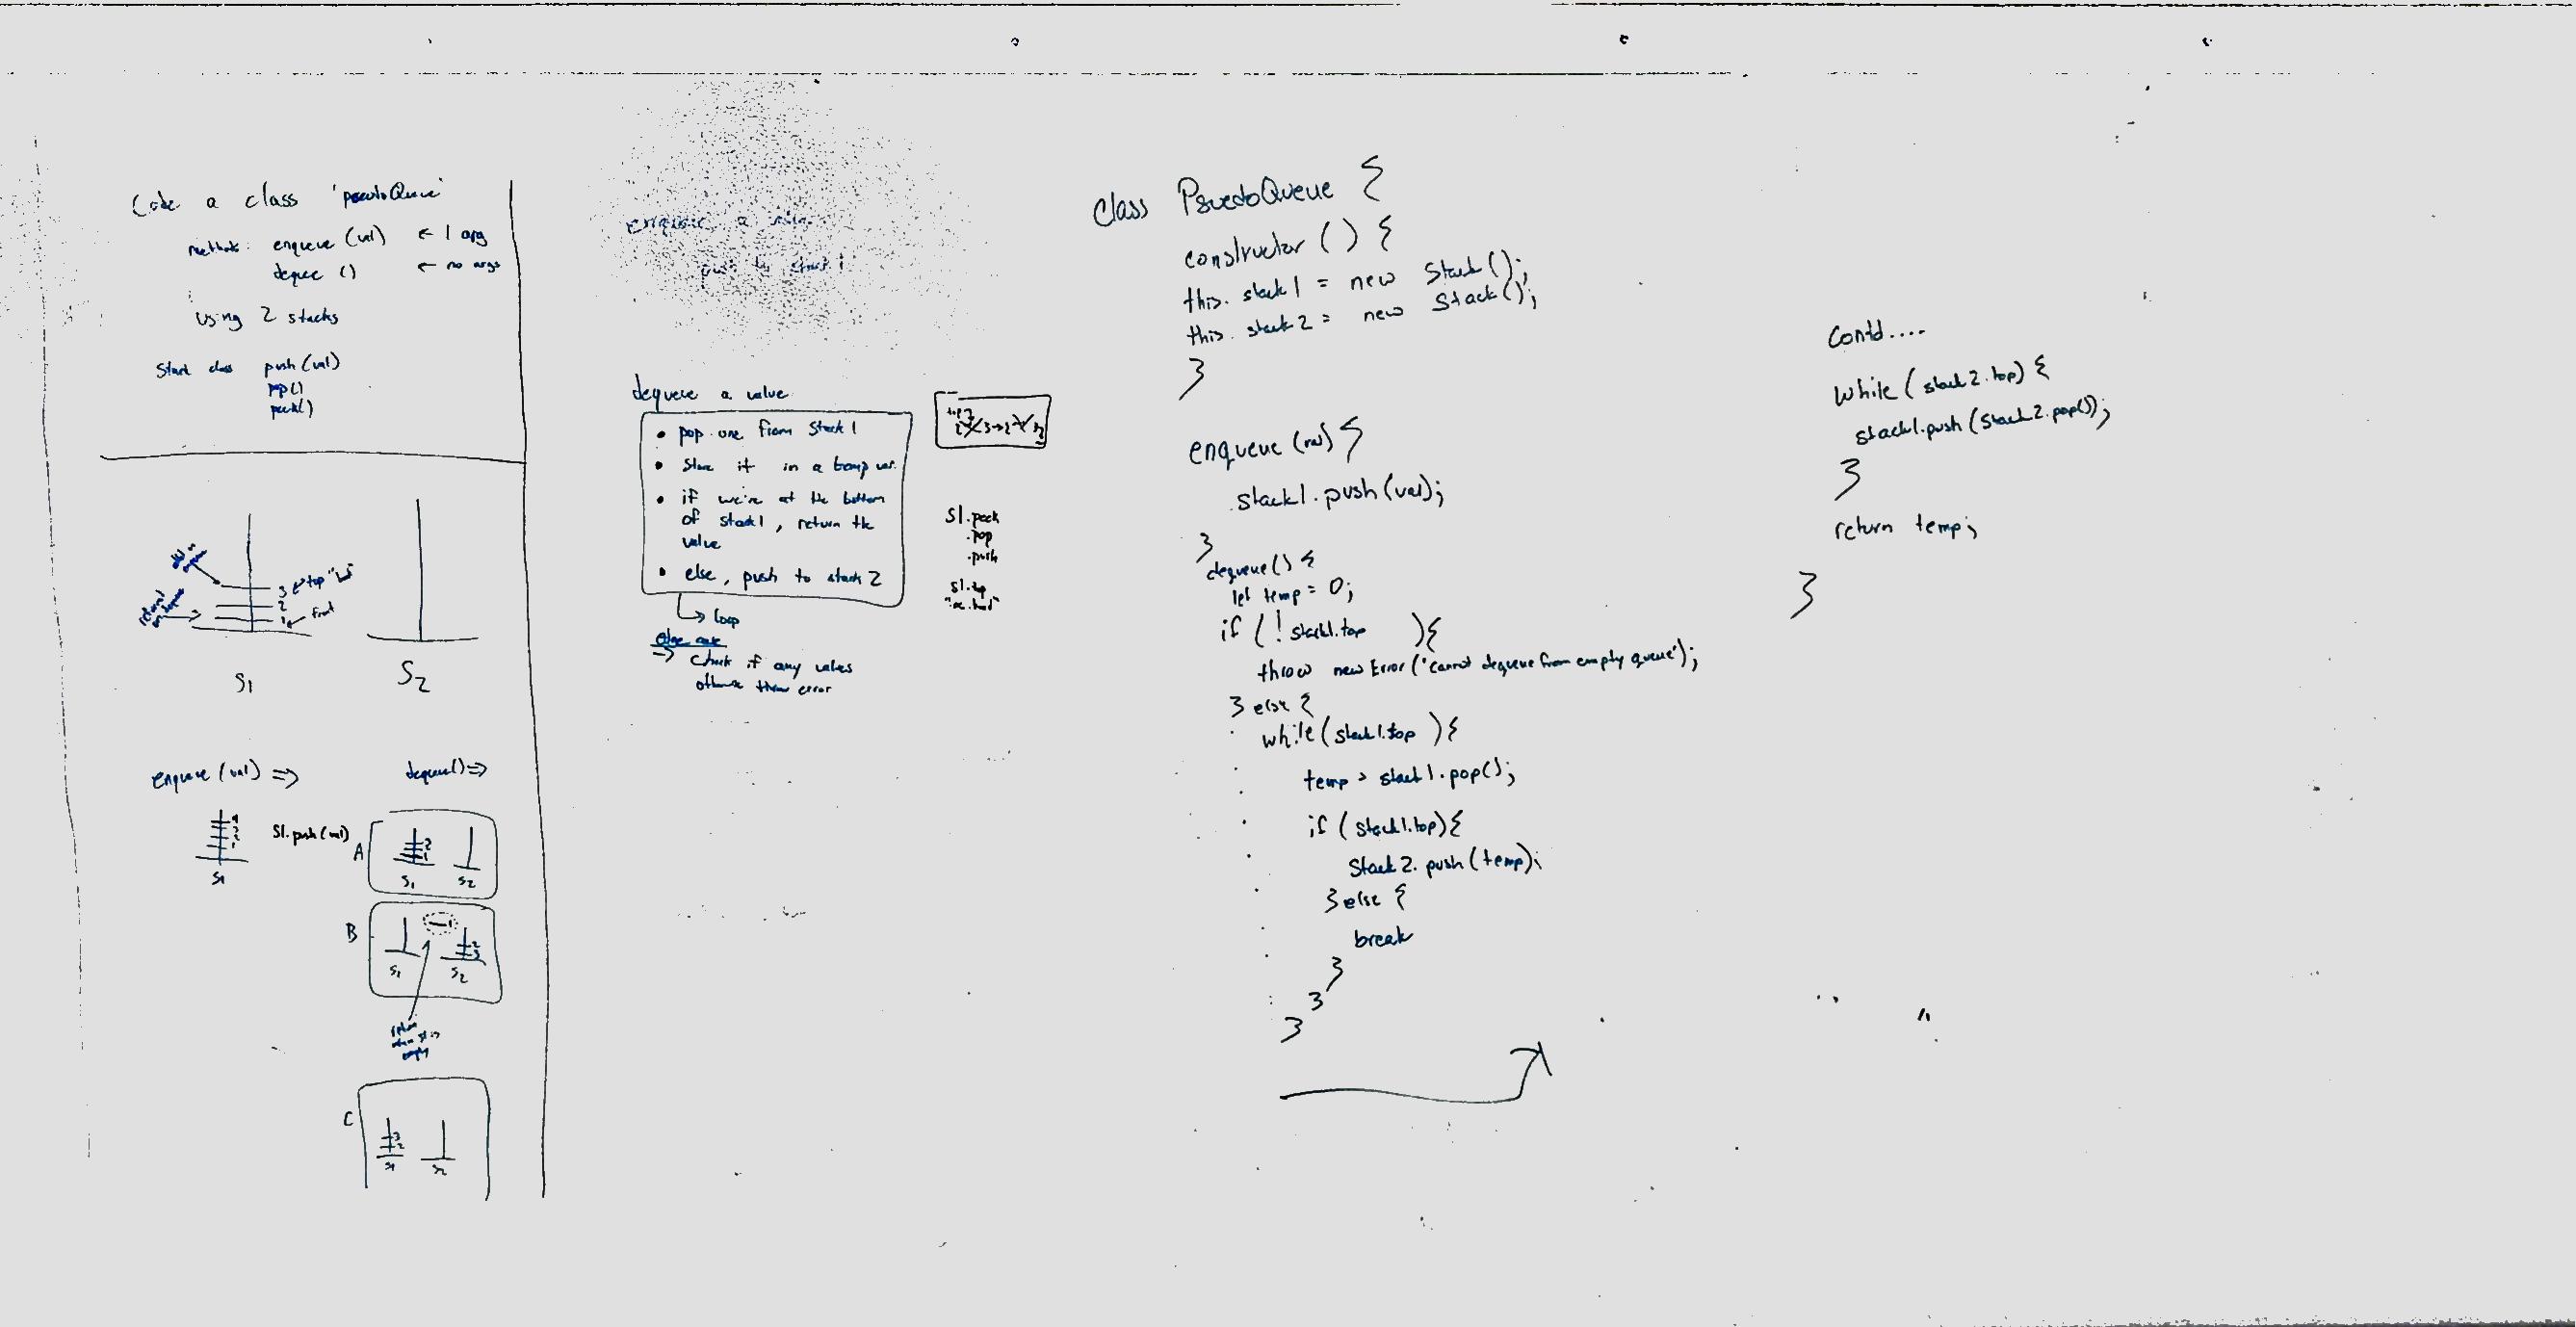 Code a class 'pseudoQueue'
methods: enqueue (val) ← 1 arg
dequee () ← no args
Using 2 stacks
class push(val)
pop()
peek()
3 ← top
2
1 ← front
S1
S2
enqueue (val) ⇒
4
3
2
1
S1
S1.push(val)
dequeue() ⇒
A
S1 S2
B
S1 S2
return when S1 is empty
C
3
2
S1 S2
enqueue a
push to
dequeue a value
• pop one from Stack1
• store it in a temp var.
• if we're at the bottom
of stack1, return the
value
• else, push to stack2
↳ loop
edge case
⇒ Check if any values
otherwise throw error
S1.peek
.pop
.push
S1.top
class PsuedoQueue {
constructor () {
this.stack1 = new Stack();
this.stack2 = new Stack();
}
enqueue (val) {
stack1.push(val);
}
dequeue() {
let temp = 0;
if (!stack1.top ){
throw newError('cannot dequeue from empty queue');
} else {
while(stack1.top ){
temp = stack1.pop();
if (stack1.top){
Stack2.push(temp);
} else {
break
}
}
}
Contd....
while (stack2.top) {
stack1.push(Stack2.pop());
}
return temp;
}